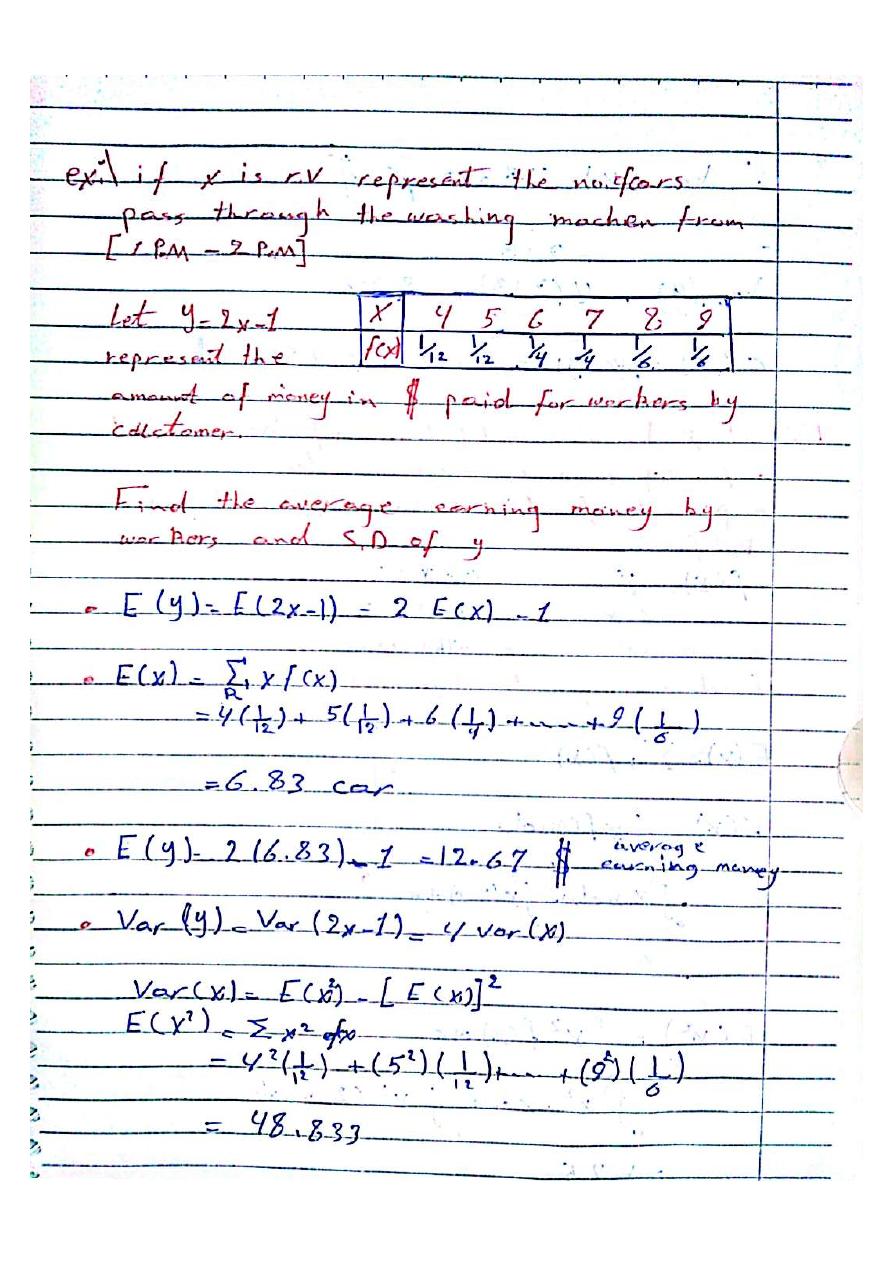 ex:\ if x is r.v represent the no. of cars
pass through the washing machen from
[1 P.M - 2 P.M]
Let y=2x-1
X 4 5 6 7 8 9
f(x) 1/12 1/12 1/4 1/4 1/6 1/6
represent the
amount of money in $ paid for workers by
Find the average earning money by
workers and S.D of y
• E(y) = E(2x-1) = 2 E(x) - 1
• E(x) = Σ x f(x)
R
= 4(1/12) + 5(1/12) + 6(1/4) + ..... + 9(1/6)
= 6.83 car
• E(y) = 2(6.83) - 1 = 12.67 $ average
earning money
• Var(y) = Var(2x-1) = 4 var(x)
Var(x) = E(x²) - [E(x)]²
E(x²) = Σ x² fx
= 4²(1/12) + (5²)(1/12) + .... + (9²)(1/6)
= 48.833